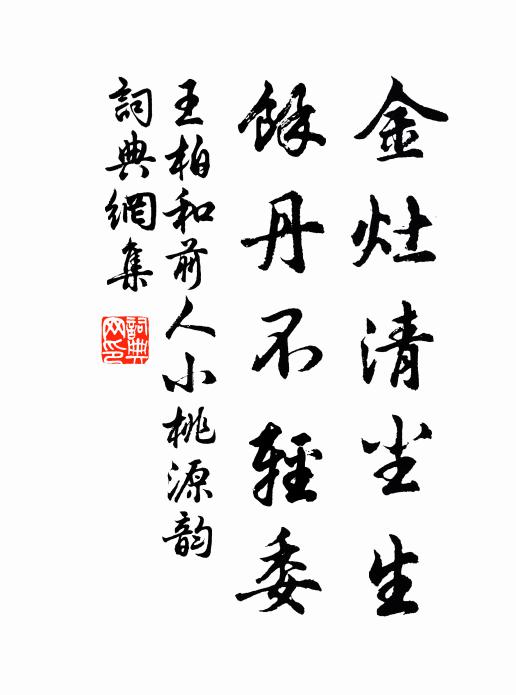 金灶清尘生
餘丹不輕委
王柏和前人小桃源韵
詞典網集
詞典网印